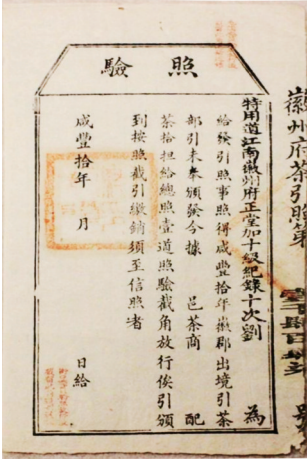 驗照
特用道江南徽州府正堂加十級紀錄十次劉 為
給發引照事照得咸豐拾年徽郡出境引茶
部引未奉頒發今據 邑茶商 配
茶拾担給總照壹道照驗截角放行俟引頒
到按照截引繳銷須至信照者
咸豐拾年 月 日給
徽州府茶引照第